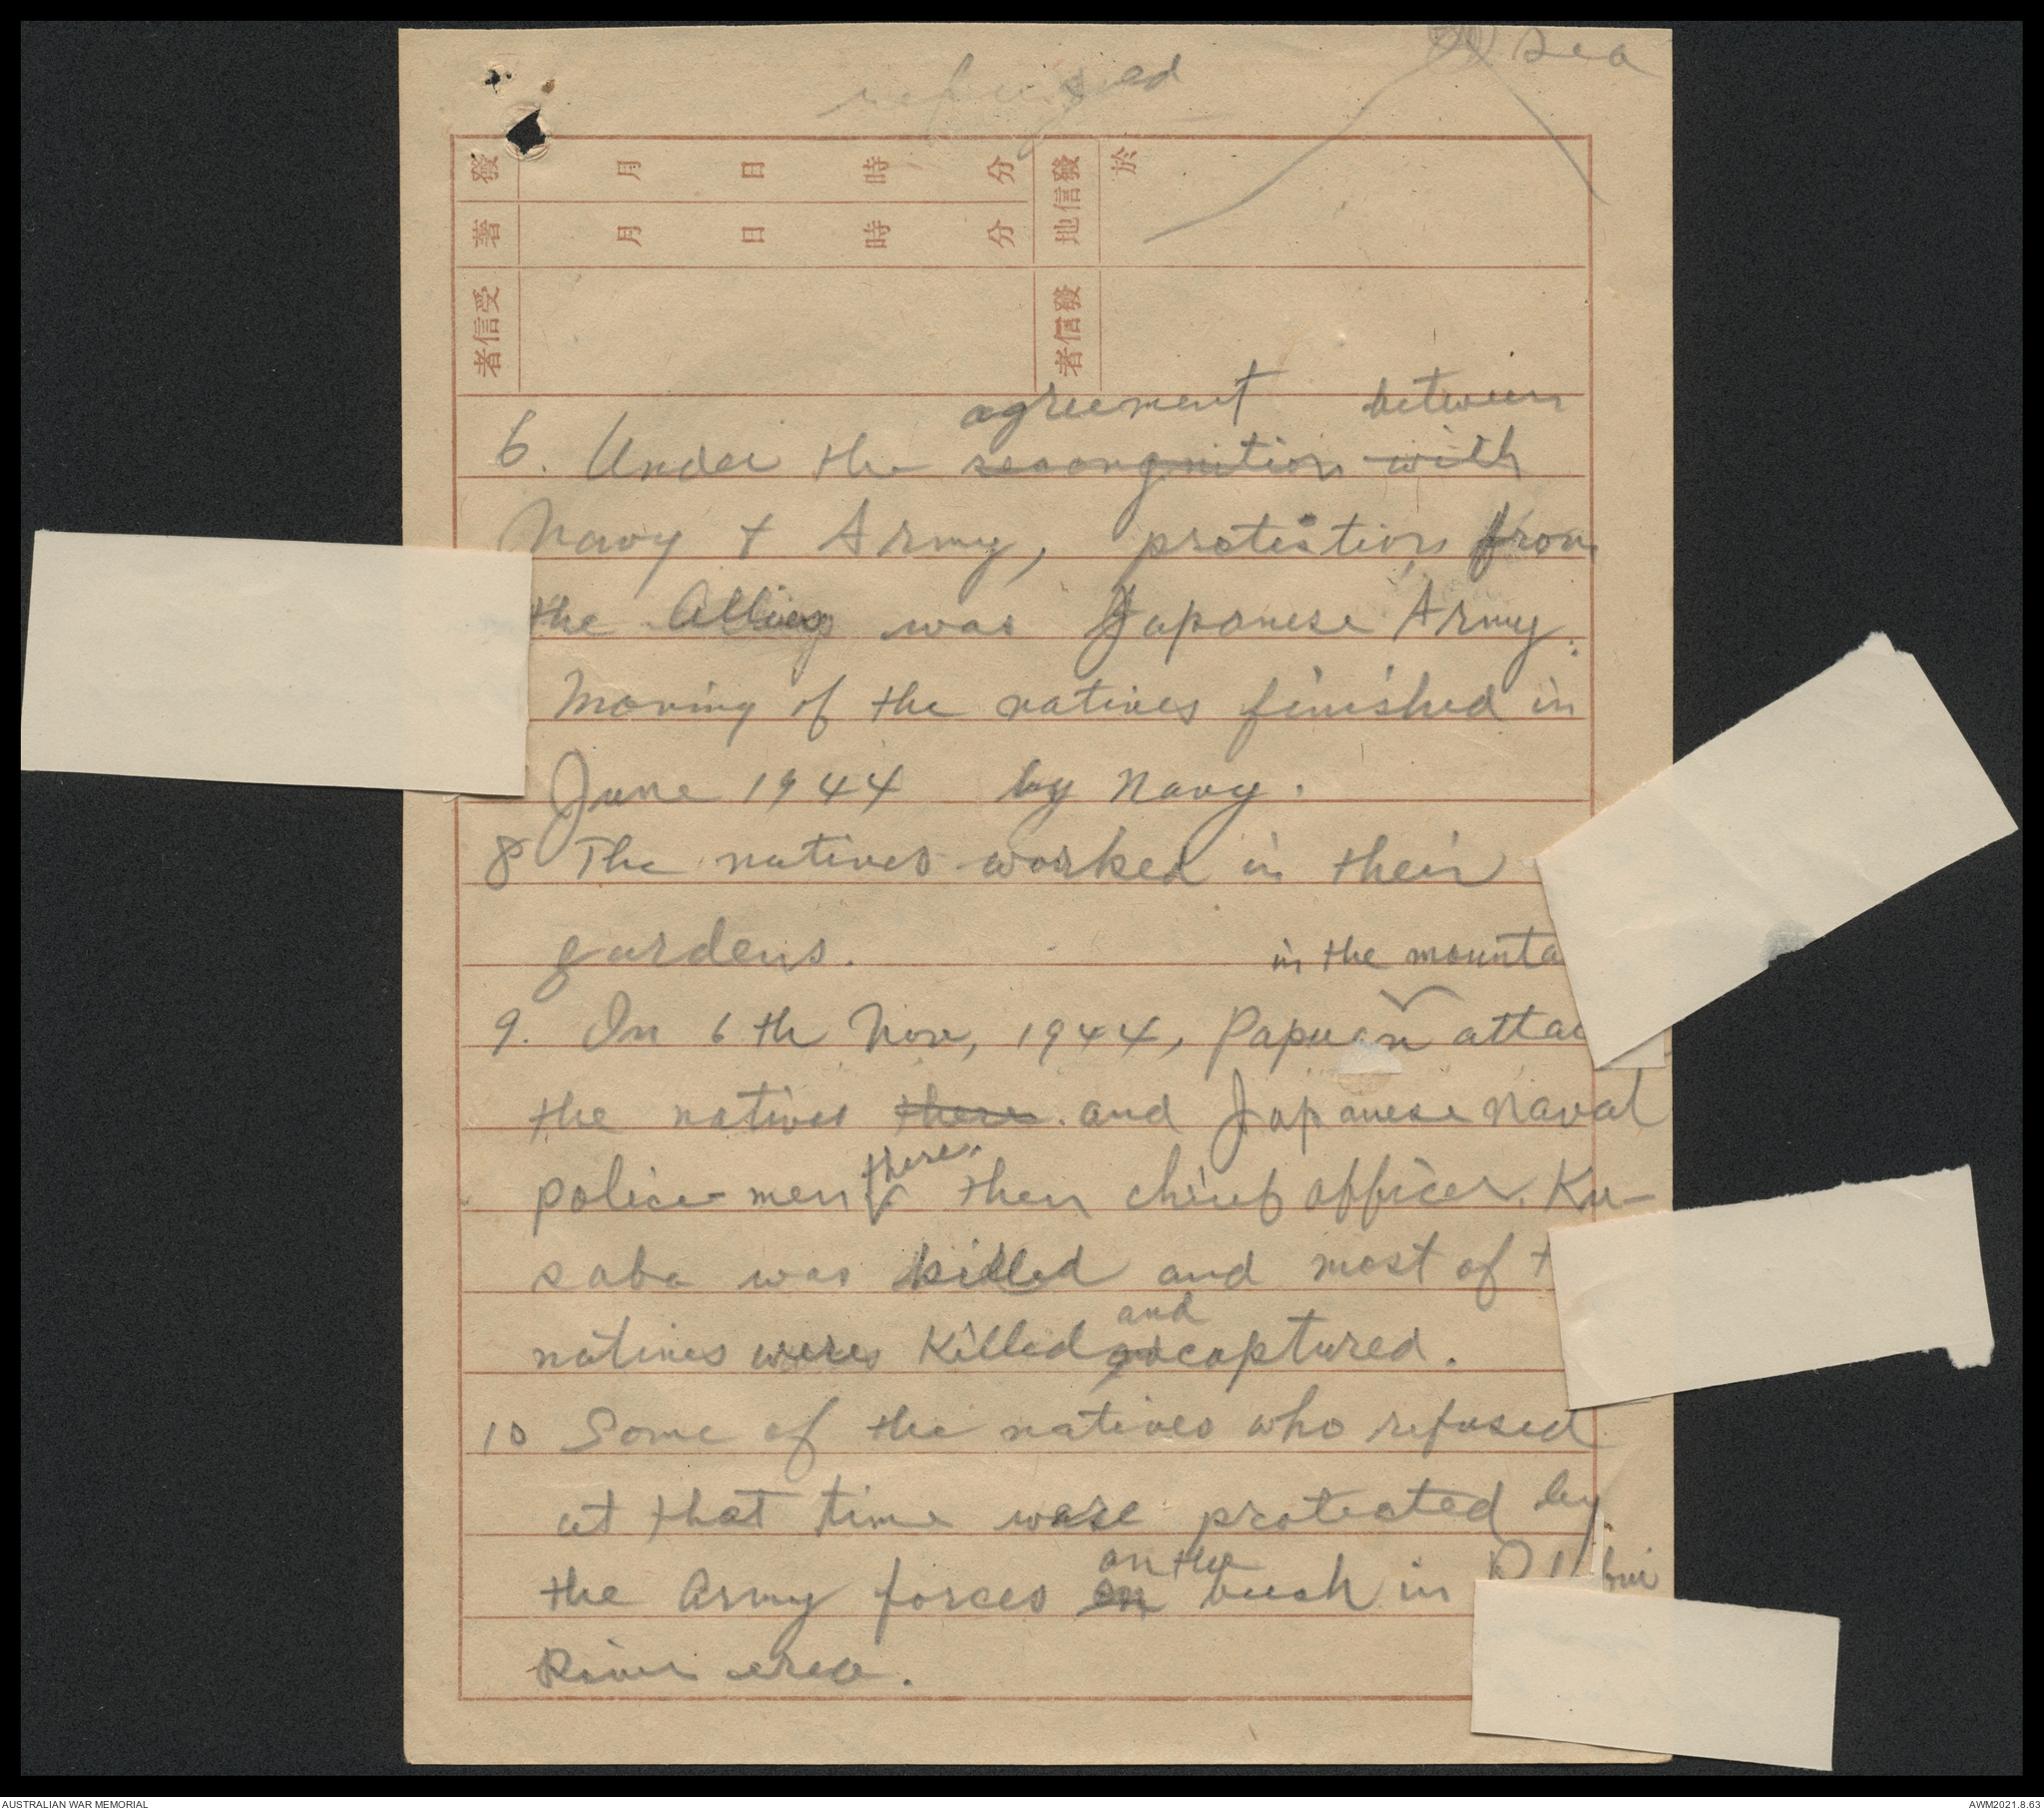 refused
Sea
發 月 日 時 分
著 月 日 時 分
地信發 於
者信受
者信發
agreement between
6. Under the recongnition with
Navy & Army, protection from
the Allies was Japanese Army.
Moving of the natives finished in
June 1944 by Navy.
8 The natives worked in their
gardens.
in the mounta
9. On 6th Nov, 1944, Papuan attac
the natives there. and Japanese Naval
police-men there. then chief officer. Ku-
saba was killed and most of t
natives were killed and captured.
10 Some of the natives who refused
at that time were protected by
on the
the Army forces on bush in
River area.
AUSTRALIAN WAR MEMORIAL
AWM2021.8.63